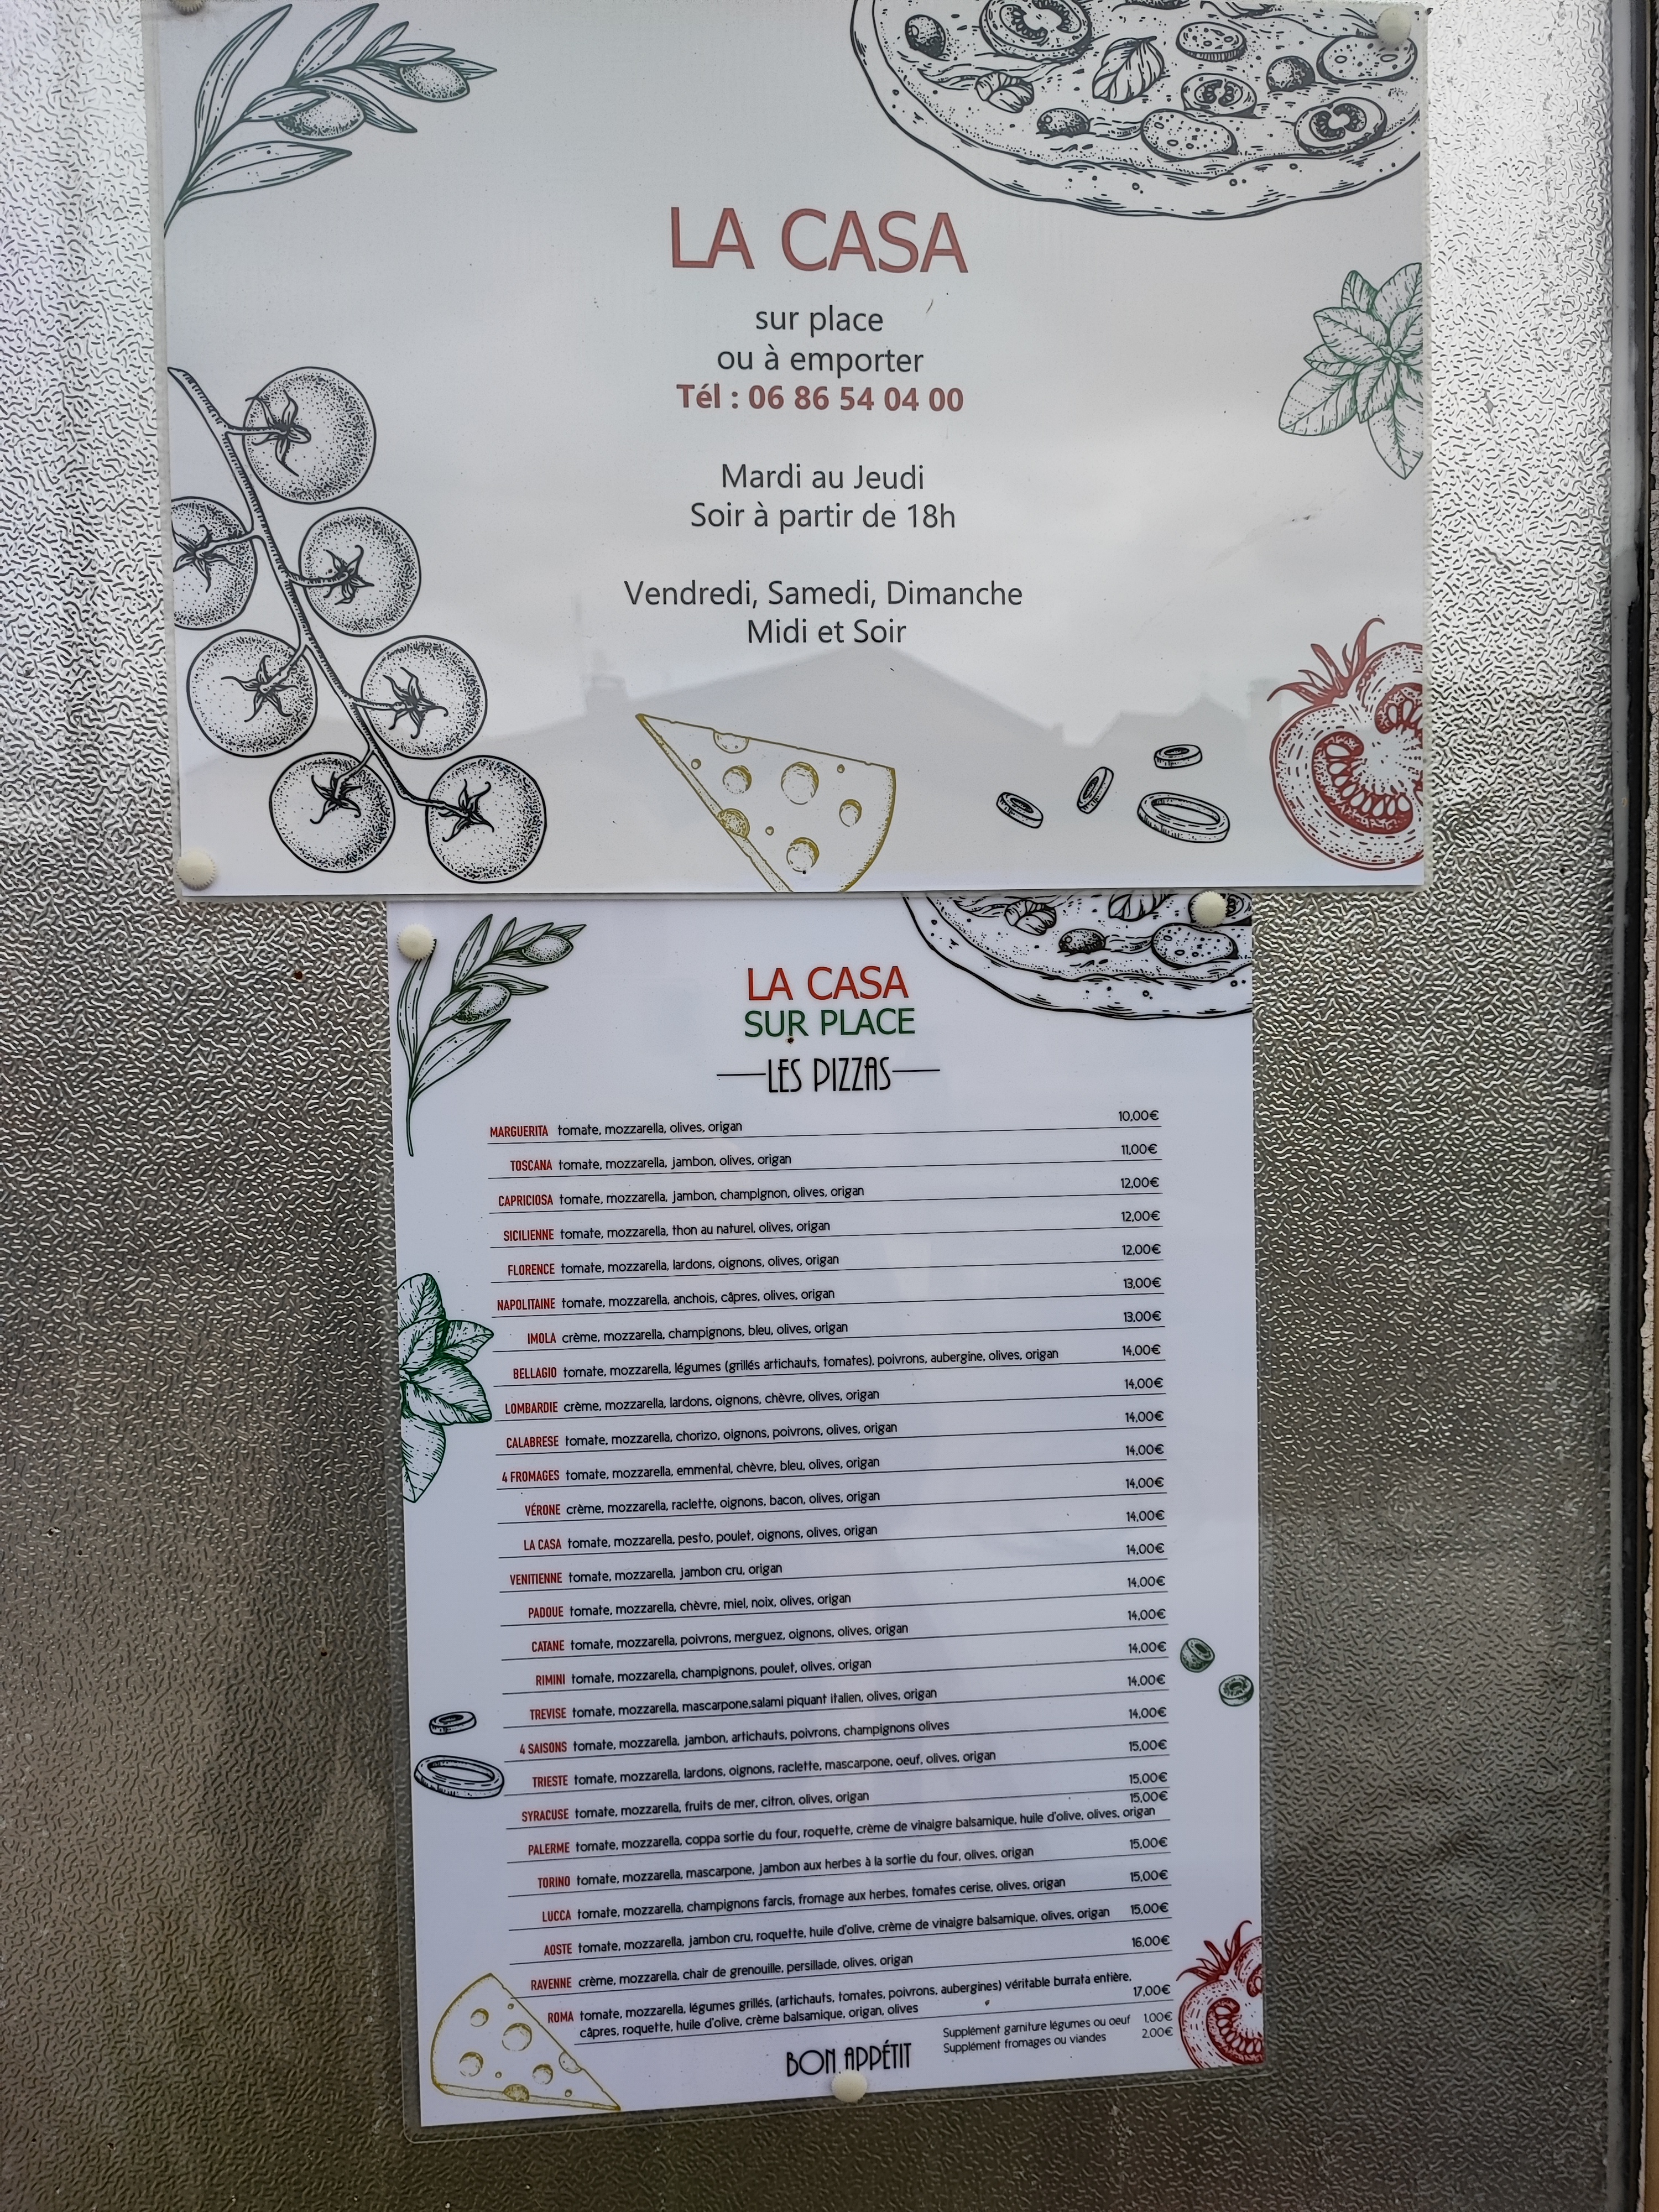 LA CASA
sur place
ou à emporter
Tél : 06 86 54 04 00
Mardi au Jeudi
Soir à partir de 18h
Vendredi, Samedi, Dimanche
Midi et Soir
LA CASA
SUR PLACE
LES PIZZAS
MARGUERITA tomate, mozzarella, olives, origan 10,00€
TOSCANA tomate, mozzarella, jambon, olives, origan 11,00€
CAPRICIOSA tomate, mozzarella, jambon, champignon, olives, origan 12,00€
SICILIENNE tomate, mozzarella, thon au naturel, olives, origan 12,00€
FLORENCE tomate, mozzarella, lardons, oignons, olives, origan 12,00€
NAPOLITAINE tomate, mozzarella, anchois, câpres, olives, origan 13,00€
IMOLA crème, mozzarella, champignons, bleu, olives, origan 13,00€
BELLAGIO tomate, mozzarella, légumes (grillés artichauts, tomates), poivrons, aubergine, olives, origan 14,00€
LOMBARDIE crème, mozzarella, lardons, oignons, chèvre, olives, origan 14,00€
CALABRESE tomate, mozzarella, chorizo, oignons, poivrons, olives, origan 14,00€
4 FROMAGES tomate, mozzarella, emmental, chèvre, bleu, olives, origan 14,00€
VÉRONE crème, mozzarella, raclette, oignons, bacon, olives, origan 14,00€
LA CASA tomate, mozzarella, pesto, poulet, oignons, olives, origan 14,00€
VENITIENNE tomate, mozzarella, jambon cru, origan 14,00€
PADOUE tomate, mozzarella, chèvre, miel, noix, olives, origan 14,00€
CATANE tomate, mozzarella, poivrons, merguez, oignons, olives, origan 14,00€
RIMINI tomate, mozzarella, champignons, poulet, olives, origan 14,00€
TREVISE tomate, mozzarella, mascarpone,salami piquant italien, olives, origan 14,00€
4 SAISONS tomate, mozzarella, jambon, artichauts, poivrons, champignons olives 14,00€
TRIESTE tomate, mozzarella, lardons, oignons, raclette, mascarpone, oeuf, olives, origan 15,00€
SYRACUSE tomate, mozzarella, fruits de mer, citron, olives, origan 15,00€
15,00€
PALERME tomate, mozzarella, coppa sortie du four, roquette, crème de vinaigre balsamique, huile d'olive, olives, origan
TORINO tomate, mozzarella, mascarpone, jambon aux herbes à la sortie du four, olives, origan 15,00€
LUCCA tomate, mozzarella, champignons farcis, fromage aux herbes, tomates cerise, olives, origan 15,00€
AOSTE tomate, mozzarella, jambon cru, roquette, huile d'olive, crème de vinaigre balsamique, olives, origan 15,00€
RAVENNE crème, mozzarella, chair de grenouille, persillade, olives, origan 16,00€
ROMA tomate, mozzarella, légumes grillés, (artichauts, tomates, poivrons, aubergines) véritable burrata entière,
câpres, roquette, huile d'olive, crème balsamique, origan, olives 17,00€
Supplément garniture légumes ou oeuf 1,00€
Supplément fromages ou viandes 2,00€
BON APPÉTIT